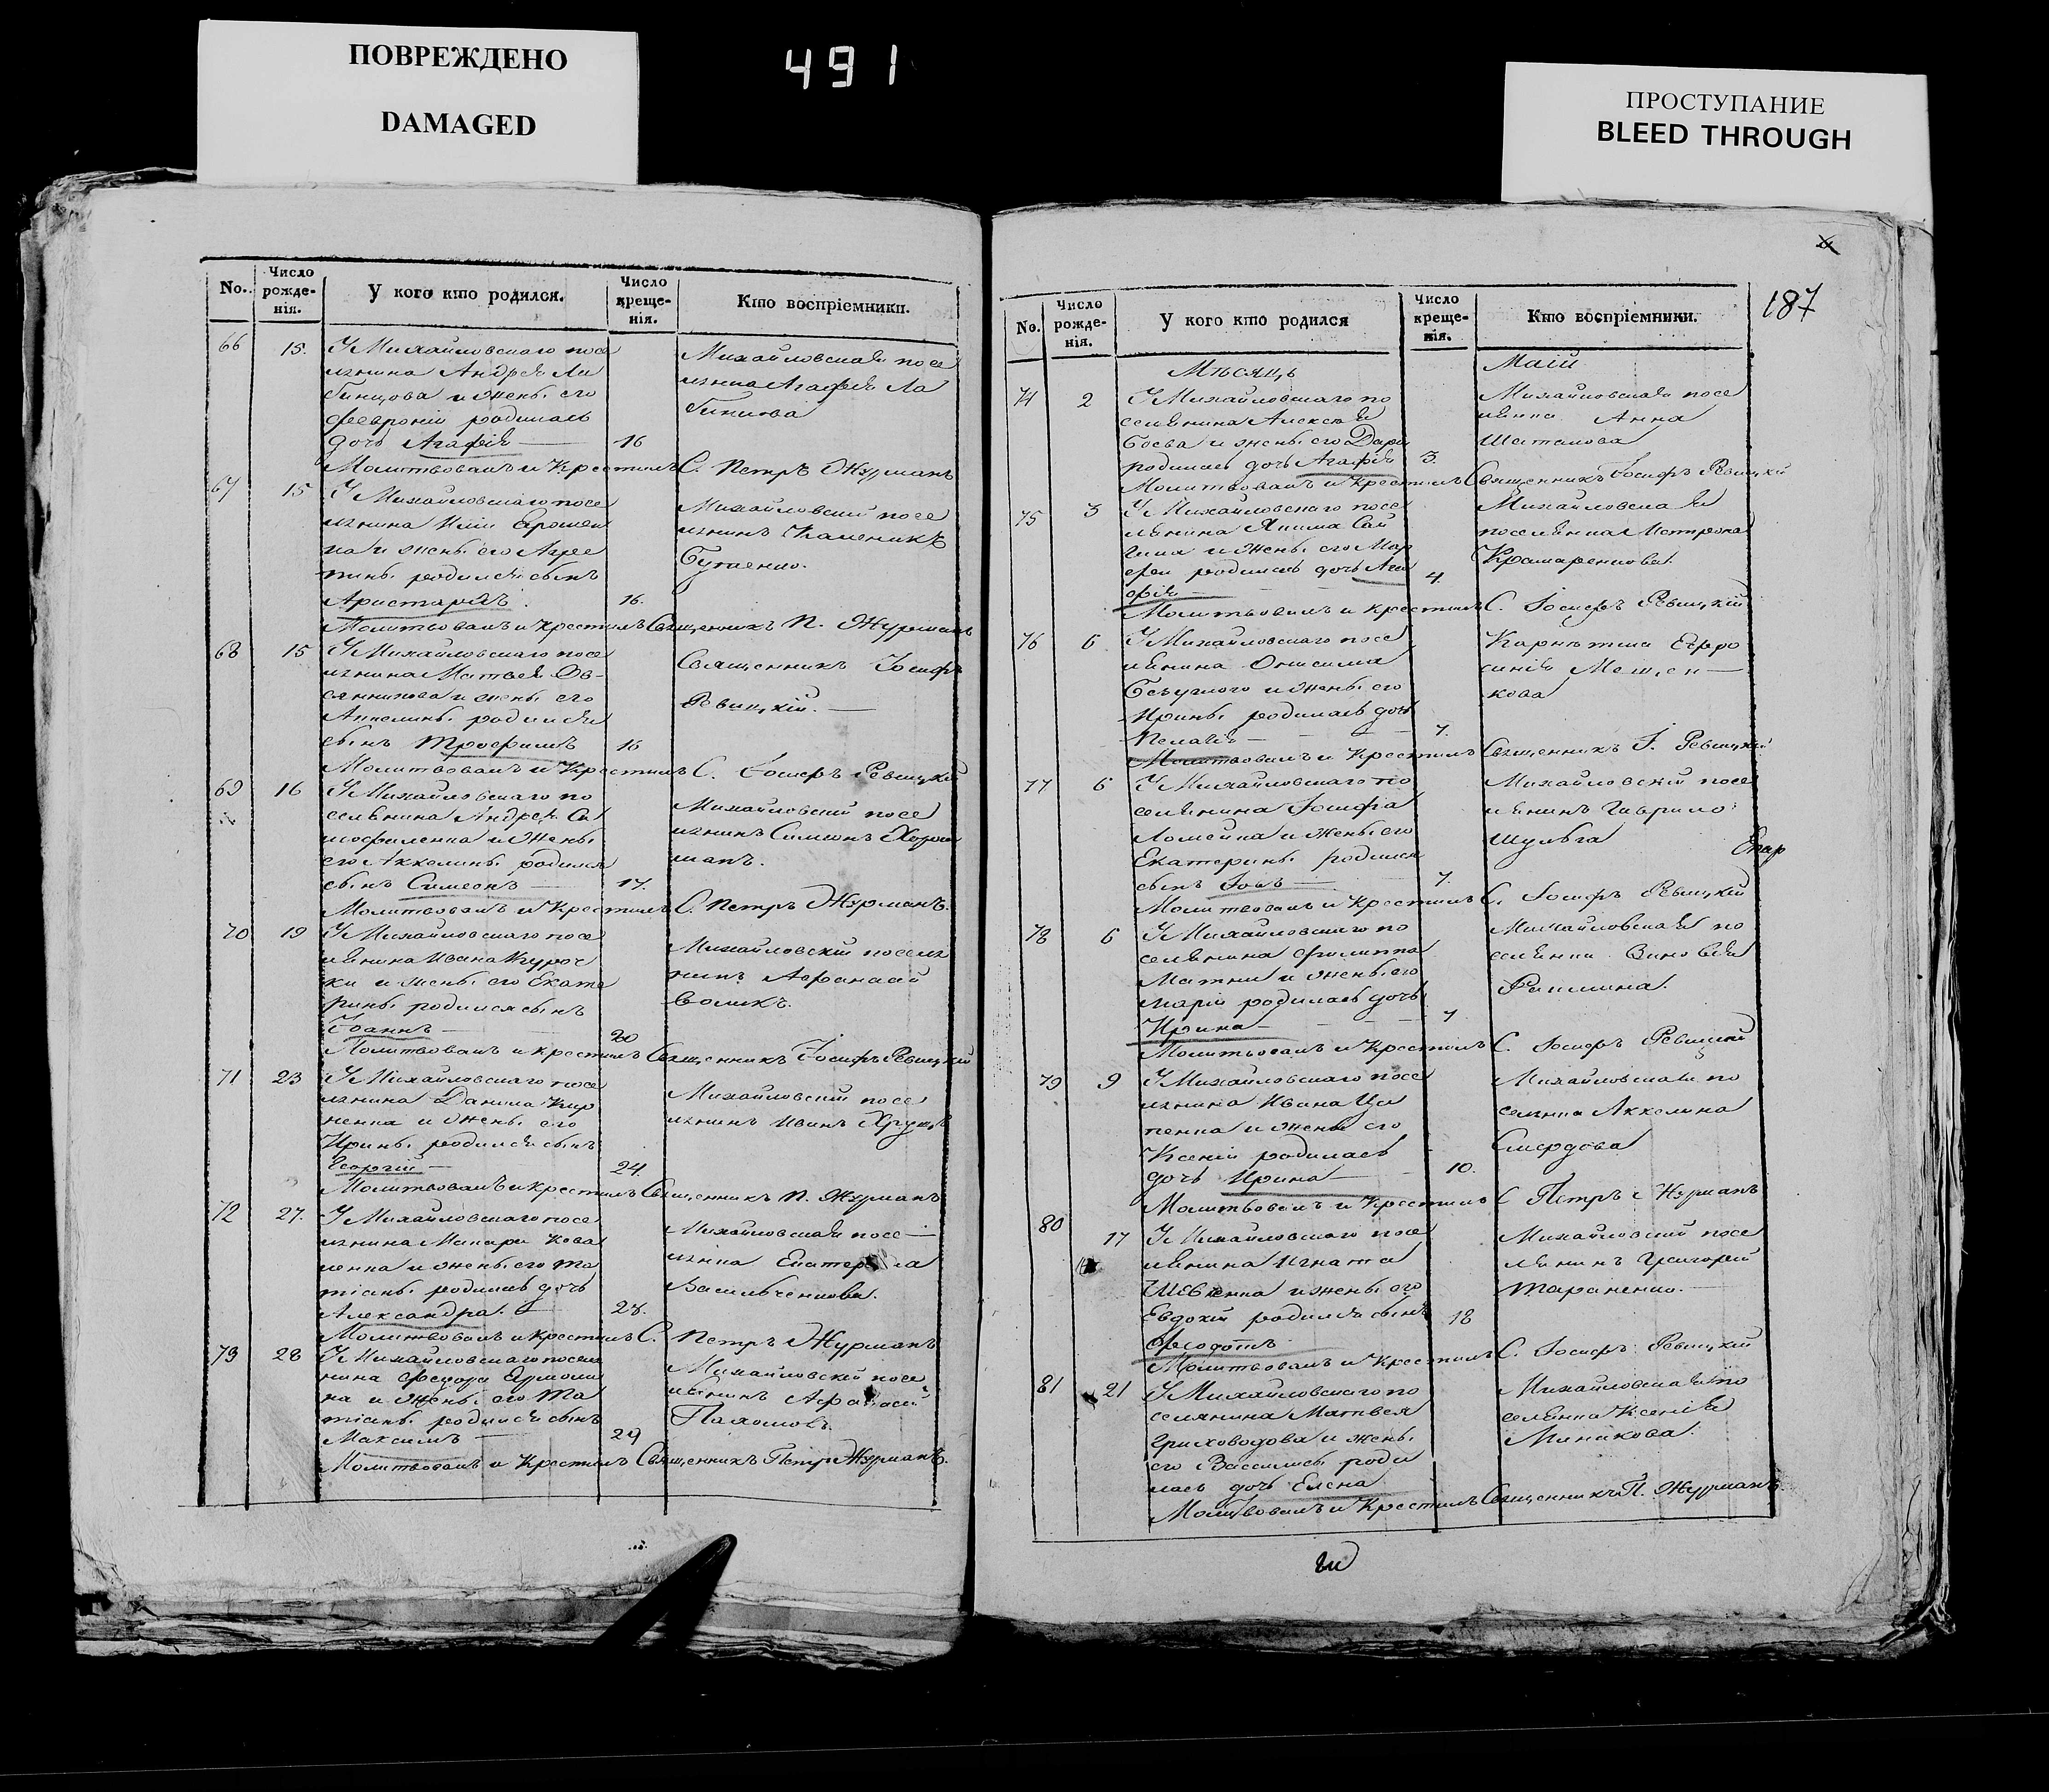 ПОВРЕЖДЕНО
DAMAGED
491
ПРОСТУПАНИЕ
BLEED THROUGH
No. Число рожде-нія. У кого кто родился. Число креще-нія. Кто воспріемники.
66 15. У Михайловскаго посе
лянина Андрея Ла
бинцова и жены его
Февроніи родилась
дочь Агафія 16
Михайловская посе
лянка Агафія Ла
Молитвовалъ и Крестилъ С. Петръ Журманъ
67 15 У Михайловскаго посе
лянина
на и жены его Агре
пины родился сынъ
Аристархъ. 16.
Михайловский посе
лянинъ
Молитвовалъ и крестилъ Священникъ П. Журманъ
68 15 У Михайловскаго посе
лянина Матвея Ов-
сянникова и жены его
Анкелины родился
сынъ Трофимъ 16
Священникъ Іосифъ
Ревицкій.
Молитвовалъ и Крестилъ С. Іосифъ Ревицкій
69 16 У Михайловскаго по
селянина Андрея
и жены
его Акхелины родился
сынъ Симеонъ 17.
Михайловский посе
лянинъ Симеонъ
Молитвовалъ и Крестилъ С. Петръ Журманъ.
70 19 У Михайловскаго посе
лянина Ивана Куроч
ки и жены его Екате
рины родился сынъ
Іоаннъ 20
Михайловскій поселя
нинъ Афанасій
Воликъ.
Молитвовалъ и крестилъ Священникъ Іосифъ Ревицкій
71 23 У Михайловскаго посе
лянина Данила Кир
ненка и жены его
Ирины родился сынъ
Георгій 24
Михайловский посе
лянинъ Иванъ
Молитвовалъ и крестилъ Священникъ П. Журманъ
72 27. У Михайловскаго посе
лянина Макара Кова
ленка и жены его Та
тіаны родилась дочь
Александра. 28.
Михайловская посе
лянка Екатерина
Васильченкова.
Молитвовалъ и крестилъ С. Петръ Журманъ
73 28 У Михайловскаго поселя
нина Федора Ермоли
на и жены его Та
тіаны родился сынъ
Максимъ 29
Михайловский посе
лянинъ Афанасій
Пахомовъ.
Молитвовалъ и Крестилъ Священникъ Петръ Журманъ.
187
No. Число рожде-нія. У кого кто родился Число креще-нія. Кто воспріемники.
Мѣсяцъ Маій
74 2 У Михайловскаго по
селянина Алексея
Боева и жены его Дарьи
родилась дочь Агафія 3.
Михайловская посе
лянка Анна
Шаталова
Молитвовалъ и крестилъ Священникъ Іосифъ Ревицкій
75 3 У Михайловскаго посе
лянина Якима Сай
и жены его Мар
фы родилась дочь Ага
фія 4.
Михайловская
поселянка Матрона
Крамаренкова.
Молитвовалъ и крестилъ С. Іосифъ Ревицкій
76 6 У Михайловскаго посе
лянина Онисима
Безуглого и жены его
Ирины родилась дочь
Пелагія 7.
Карнетша Ефро
синія Мещен
кова
Молитвовалъ и Крестилъ Священникъ І. Ревицкій
77 6 У Михайловскаго по
селянина Іосифа
Ломейка и жены его
Екатерины родился
сынъ Іовъ 7.
Михайловскій посе
лянинъ Гаврило
Шульга
Молитвовалъ и Крестилъ С. Іосифъ Ревицкій
78 6 У Михайловскаго по
селянина Филиппа
Матни и жены его
Маріи родилась дочь
Ирина 7
Михайловская по
селянка Зиновія
Молитвовалъ и Крестилъ С. Іосифъ Ревицкій
79 9 У Михайловскаго посе
лянина Ивана Ца
пенка и жены его
Ксеніи родилась
дочь Ирина 10.
Михайловская по
селянка Акхелина
Смердова
Молитвовалъ и Крестилъ С Петръ Журманъ
80 17 У Михайловскаго посе
лянина Игната
Шевченка и жены его
Евдокіи родился сынъ 18
Феодотъ
Михайловский посе
лянинъ Григорий
Тараненко.
Молитвовалъ и Крестилъ С. Іосифъ Ревицкій
81 21 У Михайловскаго по
селянина Матвея
Гриховодова и жены
его Василисы роди
лась дочь Елена
Михайловская по
селянка Ксенія
Минакова.
Молитвовалъ и Крестилъ Священникъ П. Журманъ.